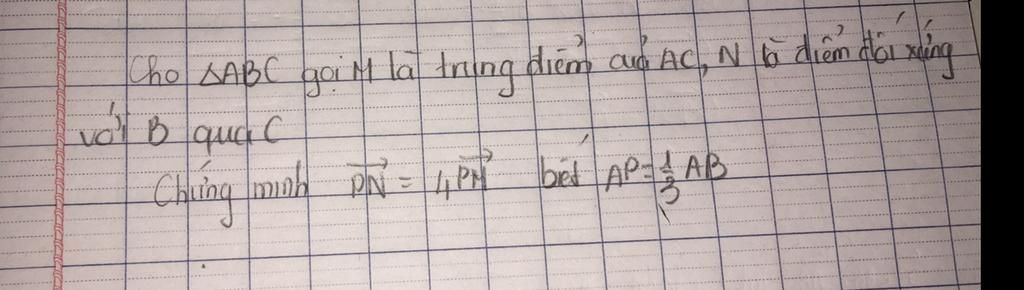 Cho △ABC gọi M là trung điểm của AC, N là điểm đối xứng
với B qua C
Chứng minh $\overrightarrow{PN}$ = 4$\overrightarrow{PM}$ biết AP = $\frac{1}{3}$ AB